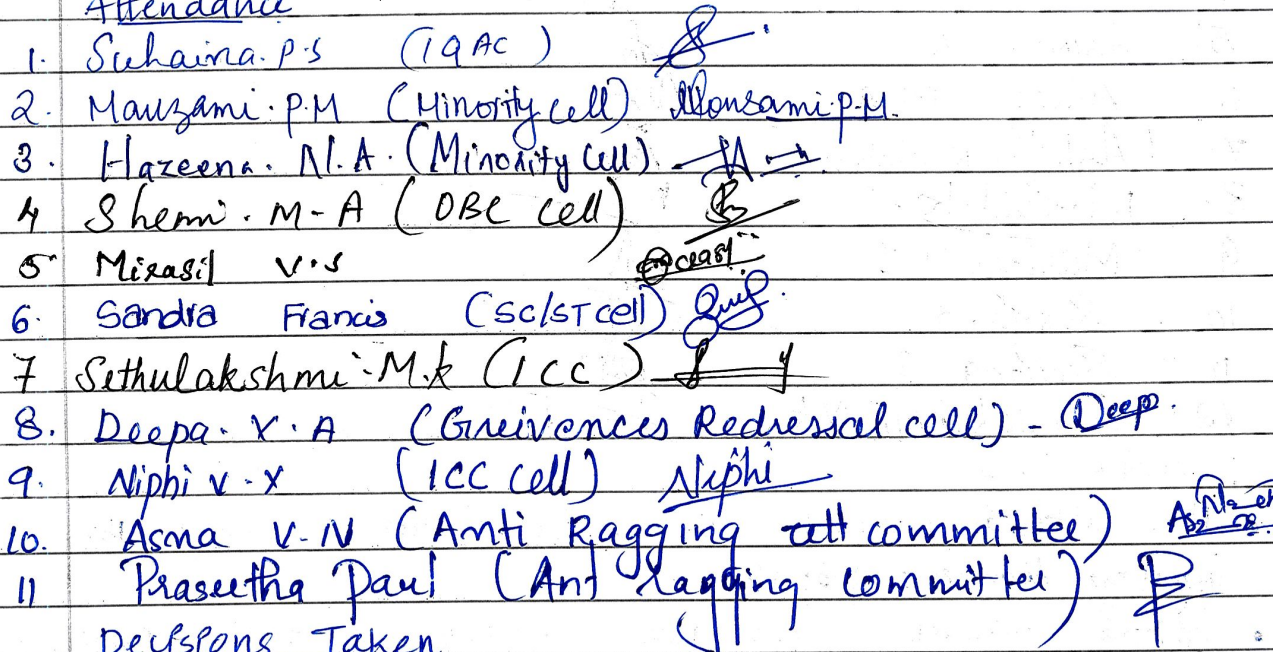 Attendance
1. Suhaina. P.S (IQAC)
2. Mauzami. P.M (Minority cell) Mousami.P.M.
3. Hazeena. N.A. (Minority Cell).
4 Shemi. M-A (OBC cell)
5 Mirasil V.S
6. Sandra Francis (SC/ST cell)
7 Sethulakshmi. M.k (ICC)
8. Deepa. V. A (Greivences Redressal cell) - Deep.
9. Niphi V.X (ICC cell) Niphi
10. Asna V.N (Anti Ragging committee)
11 Praseetha Paul (Ant ragging committee)
Decisions Taken